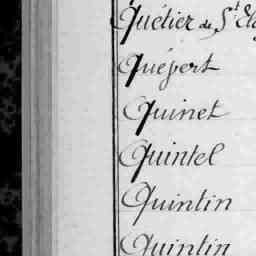 Quétier de St
Quépert
Quinet
Quintel
Quintin
Quintin